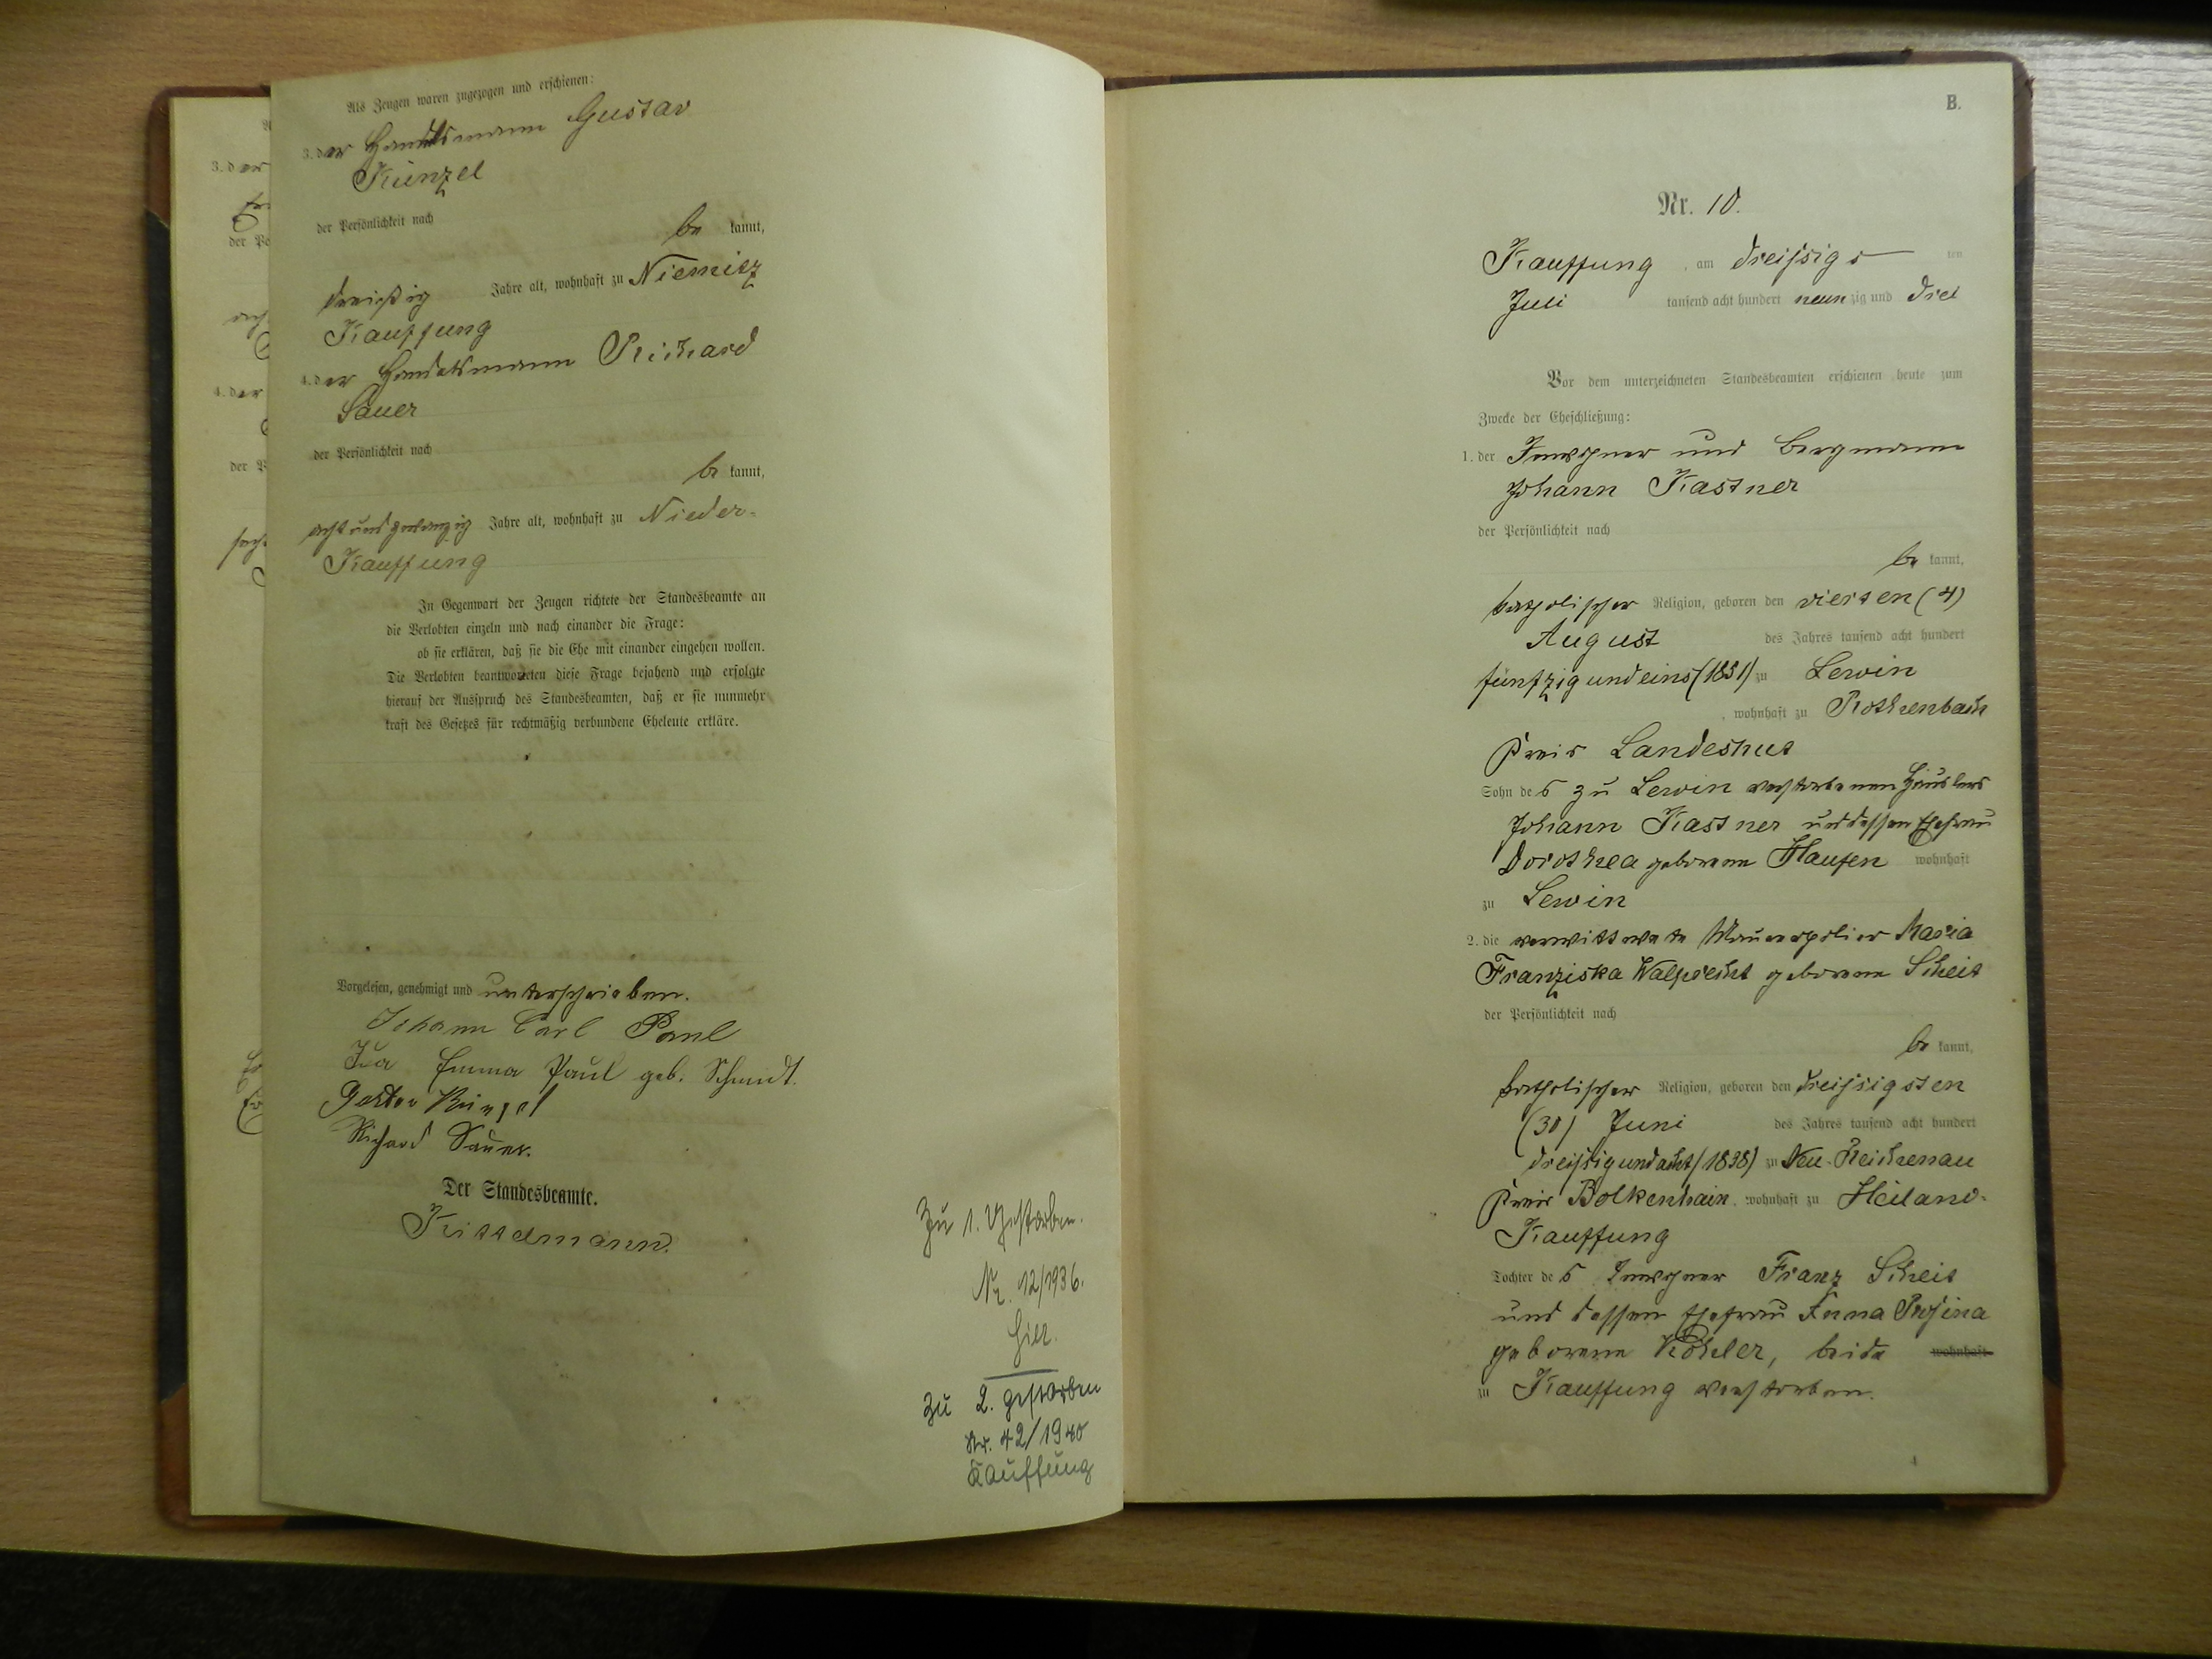 Als Zeugen waren zugezogen und erschienen:
3. der Handelsmann Gustav
Künzel
der Persönlichkeit nach
be kannt,
dreißig Jahre alt, wohnhaft zu Niemitz
Kauffung
4. der Handelsmann Richard
Sauer
der Persönlichkeit nach
be kannt,
achtundzwanzig Jahre alt, wohnhaft zu Nieder-
Kauffung
In Gegenwart der Zeugen richtete der Standesbeamte an
die Verlobten einzeln und nach einander die Frage:
ob sie erklären, daß sie die Ehe mit einander eingehen wollen.
Die Verlobten beantworteten diese Frage bejahend und erfolgte
hierauf der Ausspruch des Standesbeamten, daß er sie nunmehr
kraft des Gesetzes für rechtmäßig verbundene Eheleute erkläre.
Vorgelesen, genehmigt und unterschrieben.
Johann Carl Paul
Ida Emma Paul geb. Schmidt.
Gustav Künzel
Richard Sauer.
Der Standesbeamte.
Kittelmann.
Zu 1. Gestorben.
Nr. 12/1936.
hier.
Zu 2. gestorben
Nr. 42/1940
Kauffung
3. der
der Pe
4. der
der P
B.
Nr. 10.
Kauffung, am dreissigs ten
Juli tausend acht hundert neunzig und drei
Vor dem unterzeichneten Standesbeamten erschienen heute zum
Zwecke der Eheschließung:
1. der Inwohner und Bergmann
Johann Kastner
der Persönlichkeit nach
be kannt,
katholischer Religion, geboren den vierten (4)
August des Jahres tausend acht hundert
fünfzig und eins (1851) zu Lewin
, wohnhaft zu Rothenbach
Kreis Landeshut
Sohn des zu Lewin verstorbenen Häuslers
Johann Kastner und dessen Ehefrau
Dorothea geborene Haufen wohnhaft
zu Lewin
2. die verwittwete Maurerpolier Maria
Franziska Walprecht geborene Scheit
der Persönlichkeit nach
be kannt,
katholischer Religion, geboren den dreissigsten
(30) Juni des Jahres tausend acht hundert
dreissig und acht (1838) zu Neu-Reichenau
Kreis Bolkenhain, wohnhaft zu Heiland-
Kauffung
Tochter des Inwohner Franz Scheit
und dessen Ehefrau Anna Rosina
geborene Köhler, beide wohnhaft
zu Kauffung verstorben.